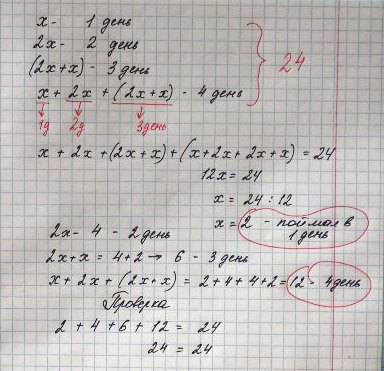 x - 1 день
2x - 2 день
(2x+x) - 3 день
x + 2x + (2x+x) - 4 день
24
1д 2д 3 день
x + 2x + (2x+x) + (x+2x+2x+x) = 24
12x = 24
x = 24 : 12
x = 2 - поймал в
1 день
2x - 4 - 2 день
2x+x = 4+2 → 6 - 3 день
x + 2x + (2x+x) = 2+4+4+2 = 12 - 4 день
Проверка
2 + 4 + 6 + 12 = 24
24 = 24